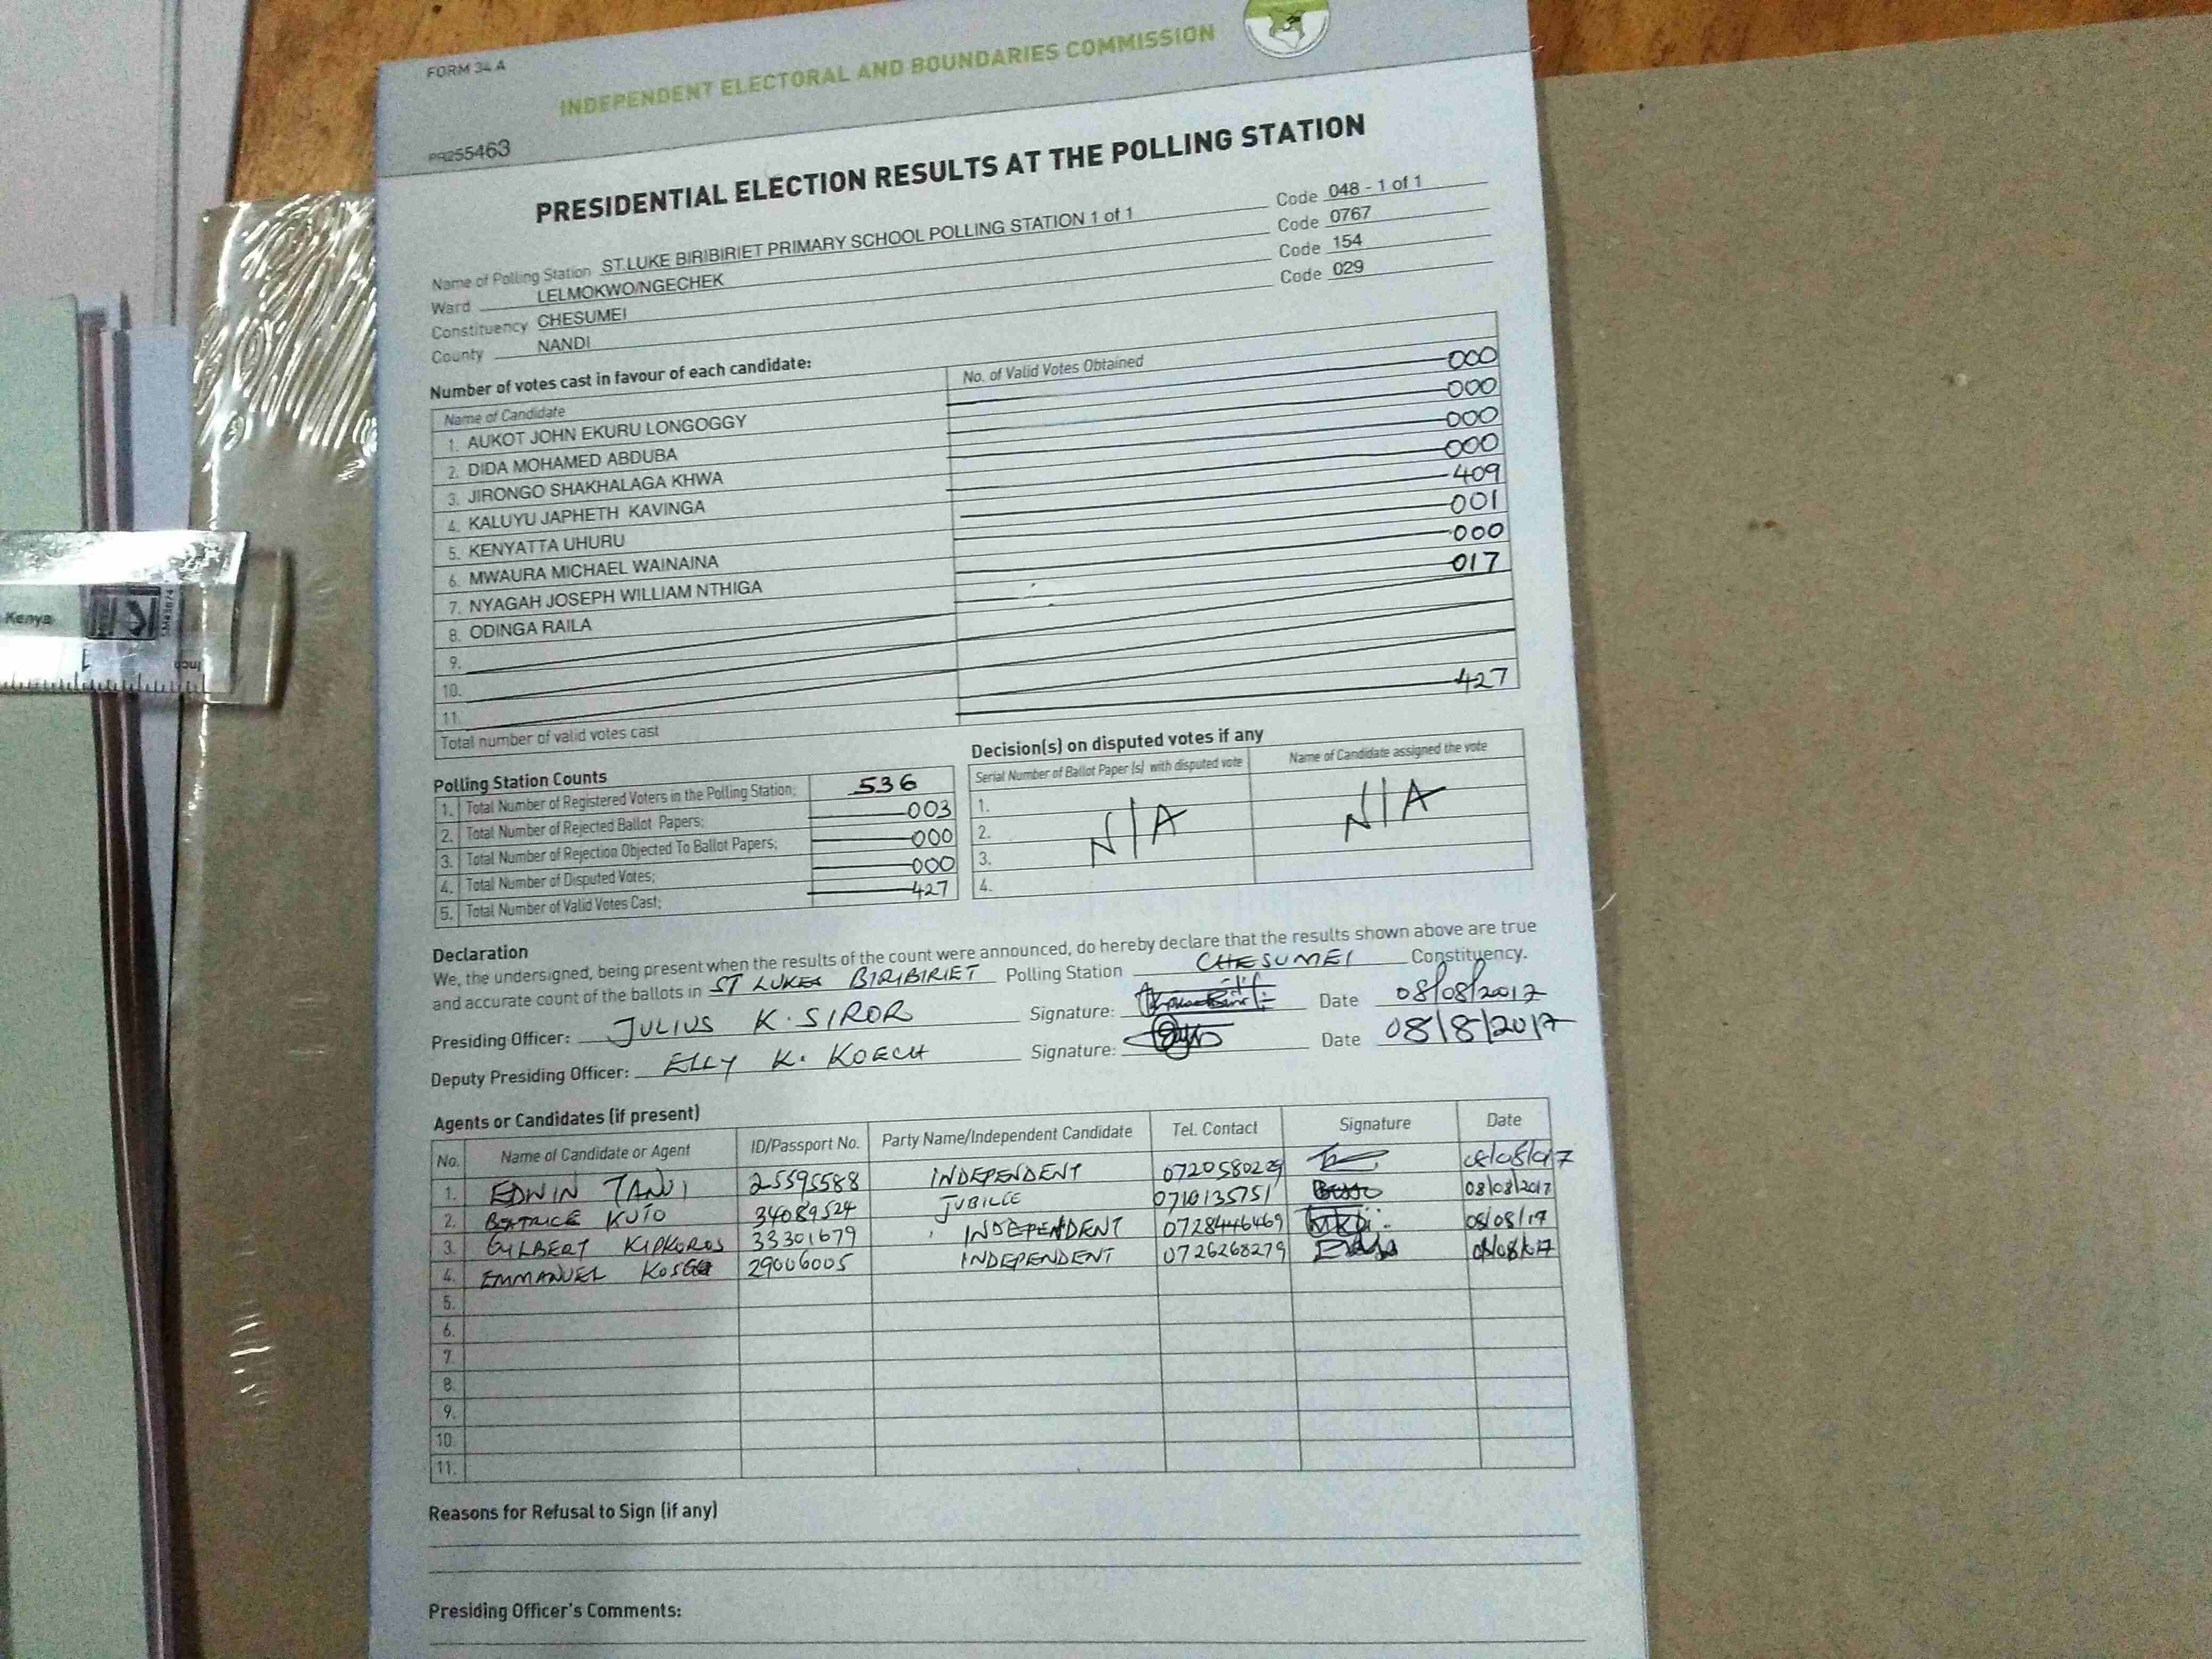 FORM 34 A
INDEPENDENT ELECTORAL AND BOUNDARIES COMMISSION
PR255463
PRESIDENTIAL ELECTION RESULTS AT THE POLLING STATION
Name of Polling Station ST.LUKE BIRIBIRIET PRIMARY SCHOOL POLLING STATION 1 of 1 Code 048 - 1 of 1
Ward LELMOKWO/NGECHEK Code 0767
Constituency CHESUMEI Code 154
County NANDI Code 029
Number of votes cast in favour of each candidate:
Name of Candidate No. of Valid Votes Obtained
1. AUKOT JOHN EKURU LONGOGGY 000
2. DIDA MOHAMED ABDUBA 000
3. JIRONGO SHAKHALAGA KHWA 000
4. KALUYU JAPHETH KAVINGA 000
5. KENYATTA UHURU 409
6. MWAURA MICHAEL WAINAINA 001
7. NYAGAH JOSEPH WILLIAM NTHIGA 000
8. ODINGA RAILA 017
9.
10.
11.
Total number of valid votes cast 427
Polling Station Counts
1. Total Number of Registered Voters in the Polling Station; 536
2. Total Number of Rejected Ballot Papers; 003
3. Total Number of Rejection Objected To Ballot Papers; 000
4. Total Number of Disputed Votes; 000
5. Total Number of Valid Votes Cast; 427
Decision(s) on disputed votes if any
Serial Number of Ballot Paper (s) with disputed vote Name of Candidate assigned the vote
1.
2. N/A N/A
3.
4.
Declaration
We, the undersigned, being present when the results of the count were announced, do hereby declare that the results shown above are true
and accurate count of the ballots in ST LUKES BIRIBIRIET Polling Station CHESUMEI Constituency.
Presiding Officer: JULIUS K. SIROR Signature: Date 08/08/2017
Deputy Presiding Officer: ELLY K. KOECH Signature: Date 08/8/2017
Agents or Candidates (if present)
No. Name of Candidate or Agent ID/Passport No. Party Name/Independent Candidate Tel. Contact Signature Date
1. EDWIN TANUI 25595588 INDEPENDENT 0720580229
2. BEATRICE KUTO 34089524 JUBILEE 0710135751 08/08/2017
3. GILBERT KIPKOROS 33301679 INDEPENDENT 0728446469 08/08/17
4. EMMANUEL 29006005 INDEPENDENT 0726268279
5.
6.
7.
8.
9.
10.
11.
Reasons for Refusal to Sign (if any)
Presiding Officer's Comments:
Kenya
Inch
1